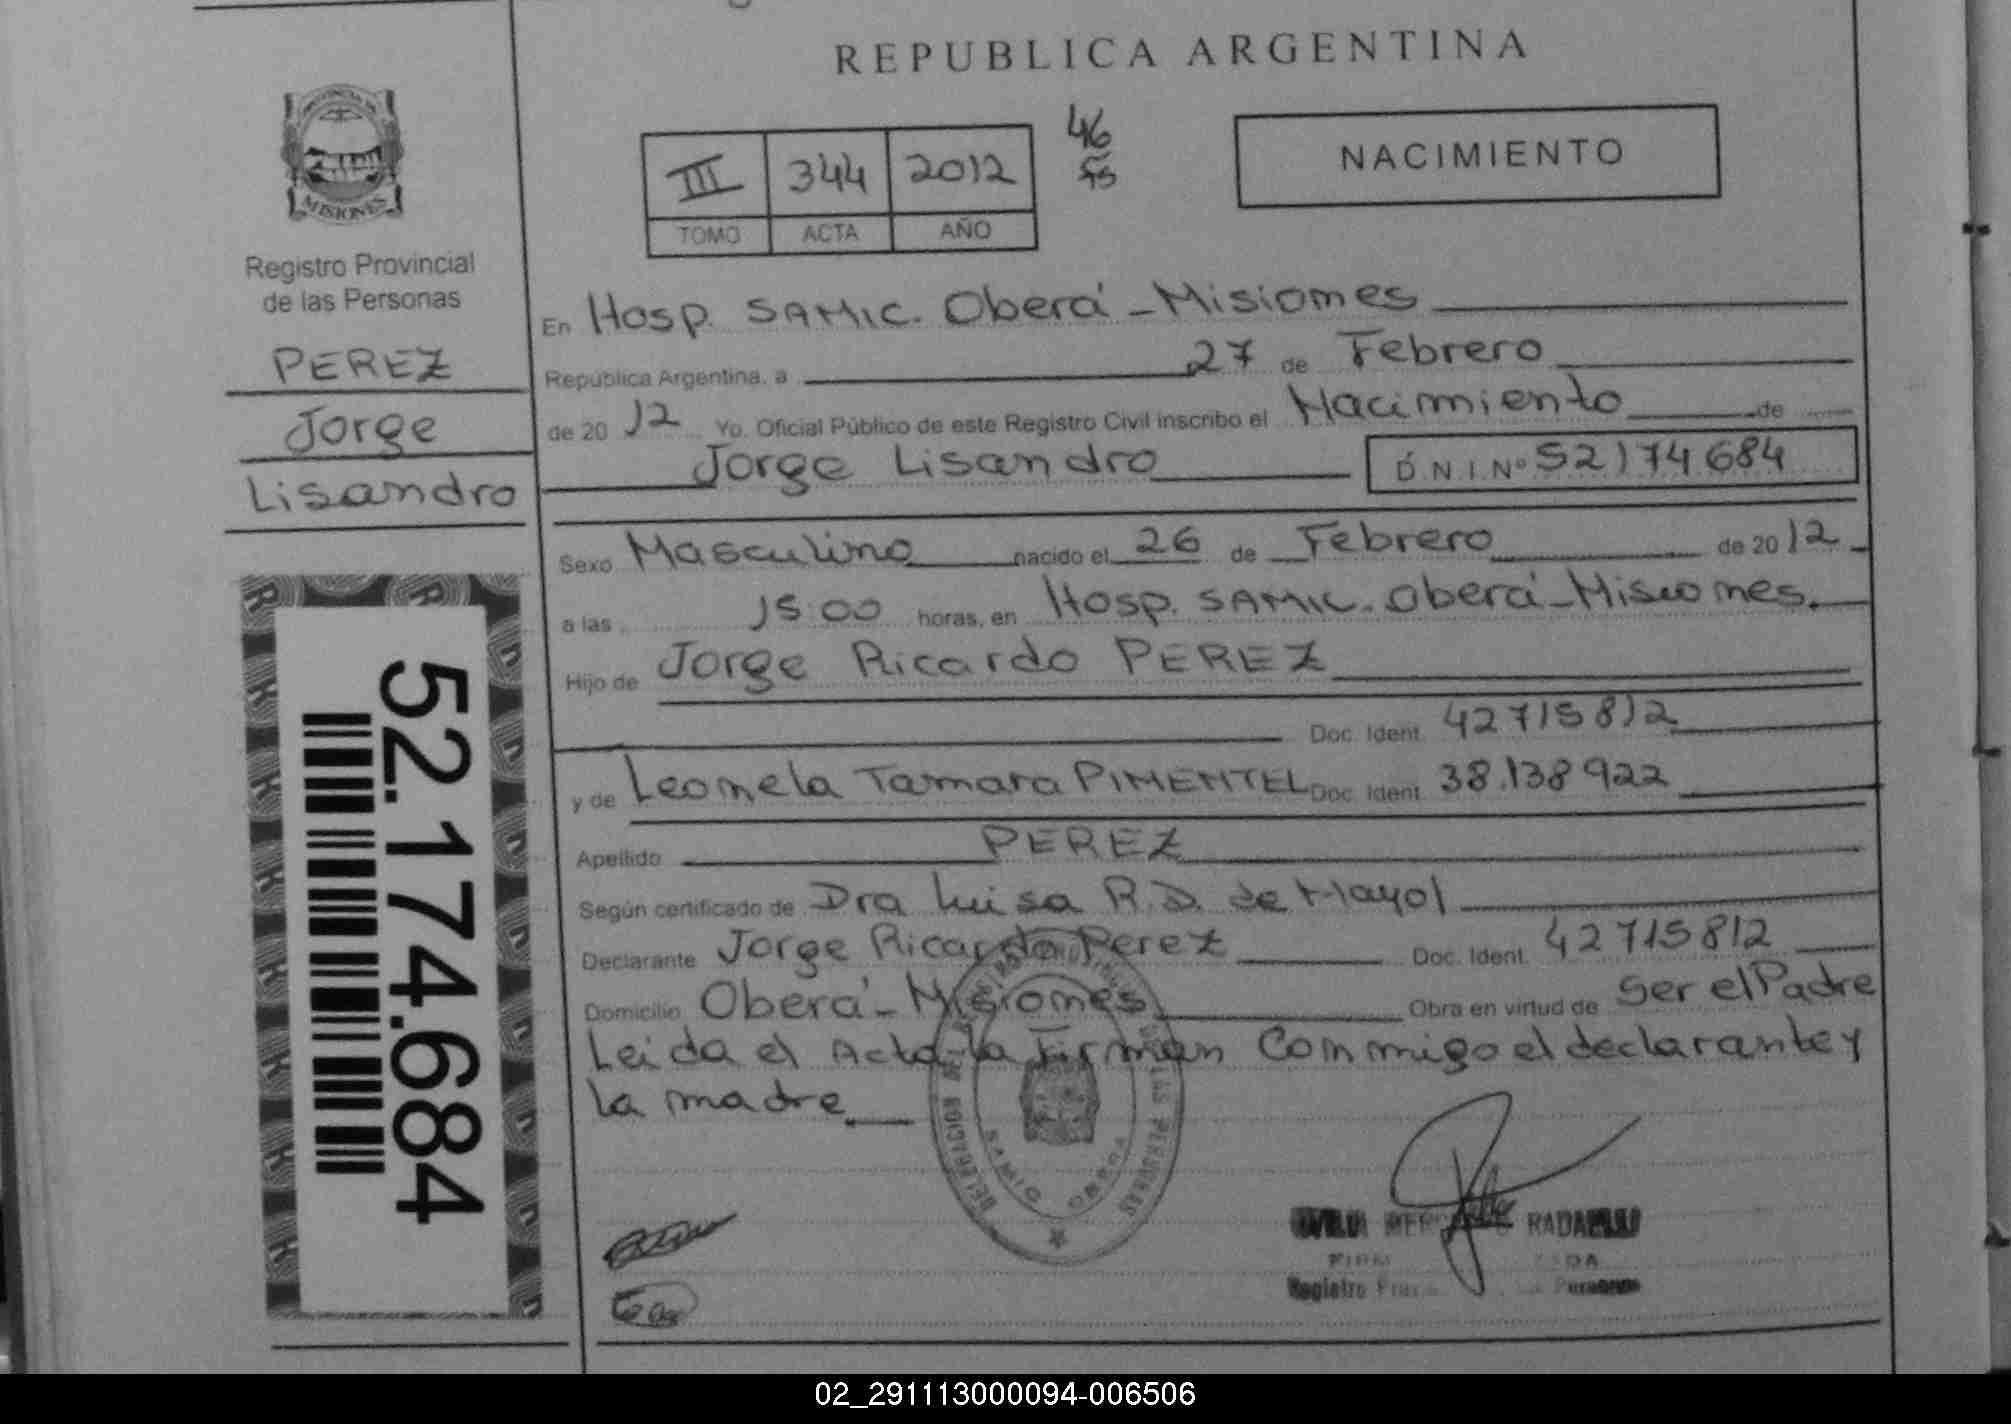 REPUBLICA ARGENTINA
PROVINCIA DE
MISIONES
Registro Provincial
de las Personas
PEREZ
Jorge
Lisandro
52.174.684
III 344 2012
TOMO ACTA AÑO
46
NACIMIENTO
En Hosp. SAMIC. Oberá - Misiones
República Argentina, a 27 de Febrero
de 2012 Yo, Oficial Público de este Registro Civil inscribo el Nacimiento de
Jorge Lisandro D.N.I.Nº 52174684
Sexo Masculino nacido el 26 de Febrero de 2012
a las 15:00 horas, en Hosp. SAMIC. Oberá - Misiones.
Hijo de Jorge Ricardo PEREZ
Doc. Ident. 42715812
y de Leonela Tamara PIMENTEL Doc. Ident. 38.138922
Apellido PEREZ
Según certificado de Dra Luisa R.D. de Mayol
Declarante Jorge Ricardo Perez Doc. Ident. 42715812
Domicilio Oberá - Misiones Obra en virtud de Ser el Padre
Leida el Acta la Firman Conmigo el declarante y
la madre
SAMIC OBERA
RADAELLI
Registro
02_291113000094-006506